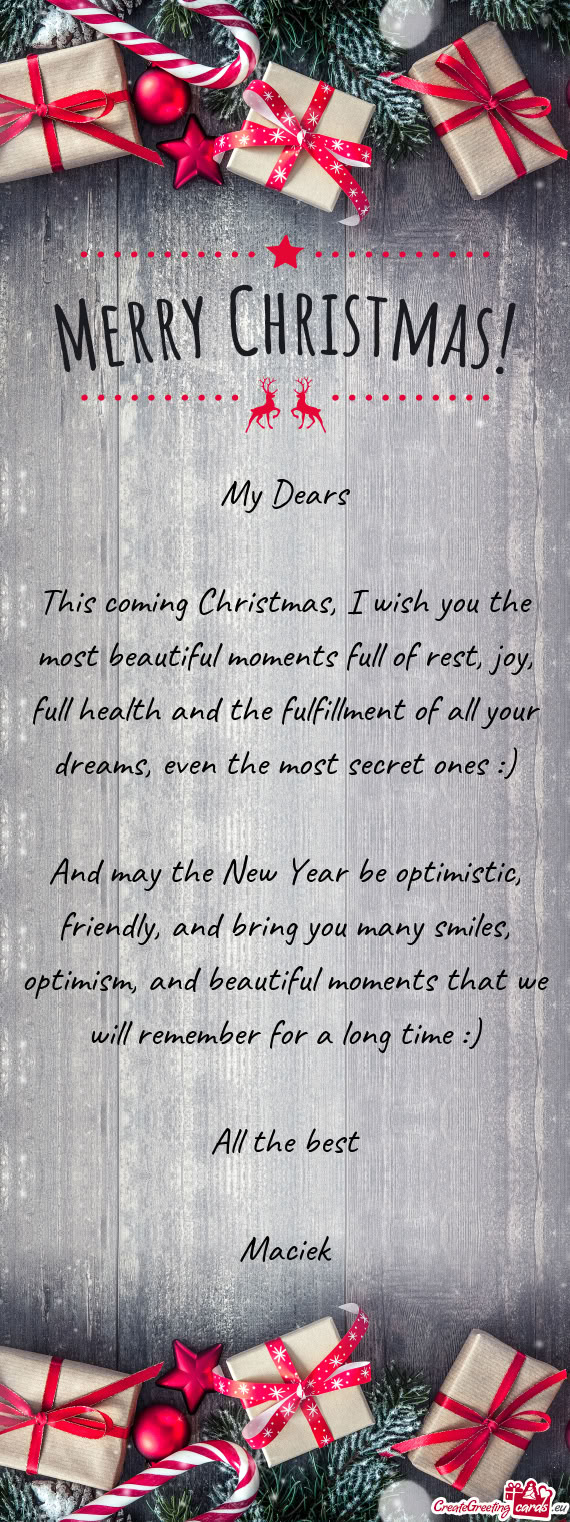 Merry Christmas!
My Dears
This coming Christmas, I wish you the
most beautiful moments full of rest, joy,
full health and the fulfillment of all your
dreams, even the most secret ones :)
And may the New Year be optimistic,
friendly, and bring you many smiles,
optimism, and beautiful moments that we
will remember for a long time :)
All the best
Maciek
CreateGreeting cards .eu